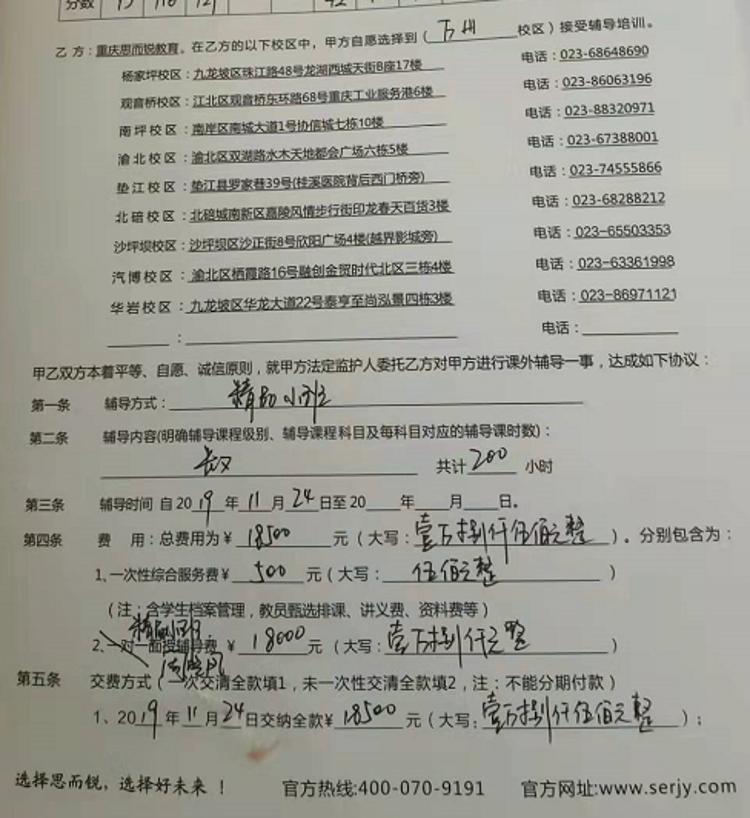 分数
乙方：重庆思而锐教育。在乙方的以下校区中，甲方自愿选择到（万州校区）接受辅导培训。
杨家坪校区：九龙坡区珠江路48号龙湖西城天街B座17楼 电话：023-68648690
观音桥校区：江北区观音桥东环路68号重庆工业服务港6楼 电话：023-86063196
南坪校区：南岸区南城大道1号协信城七栋10楼 电话：023-88320971
渝北校区：渝北区双湖路水木天地都会广场六栋5楼 电话：023-67388001
垫江校区：垫江县罗家巷39号(桂溪医院背后西门桥旁) 电话：023-74555866
北碚校区：北碚城南新区嘉陵风情步行街印龙春天百货3楼 电话：023-68288212
沙坪坝校区：沙坪坝区沙正街8号欣阳广场4楼(越界影城旁) 电话：023-65503353
汽博校区：渝北区栖霞路16号融创金贸时代北区三栋4楼 电话：023-63361998
华岩校区：九龙坡区华龙大道22号泰亨至尚泓景四栋3楼 电话：023-86971121
______：______ 电话：______
甲乙双方本着平等、自愿、诚信原则，就甲方法定监护人委托乙方对甲方进行课外辅导一事，达成如下协议：
第一条 辅导方式：精品小班
第二条 辅导内容(明确辅导课程级别、辅导课程科目及每科目对应的辅导课时数)：
共计200小时
第三条 辅导时间 自2019年11月24日至20__年__月__日。
第四条 费 用：总费用为￥18500元（大写：壹万捌仟伍佰元整）。分别包含为：
1、一次性综合服务费￥500元（大写：伍佰元整）
（注：含学生档案管理，教员甄选排课、讲义费、资料费等）
精品小班
2、一对一面授辅导费 ￥18000元（大写：壹万捌仟元整）
第五条 交费方式（一次交清全款填1，未一次性交清全款填2，注：不能分期付款）
1、2019年11月24日交纳全款￥18500元（大写：壹万捌仟伍佰元整）；
选择思而锐，选择好未来！ 官方热线:400-070-9191 官方网址:www.serjy.com